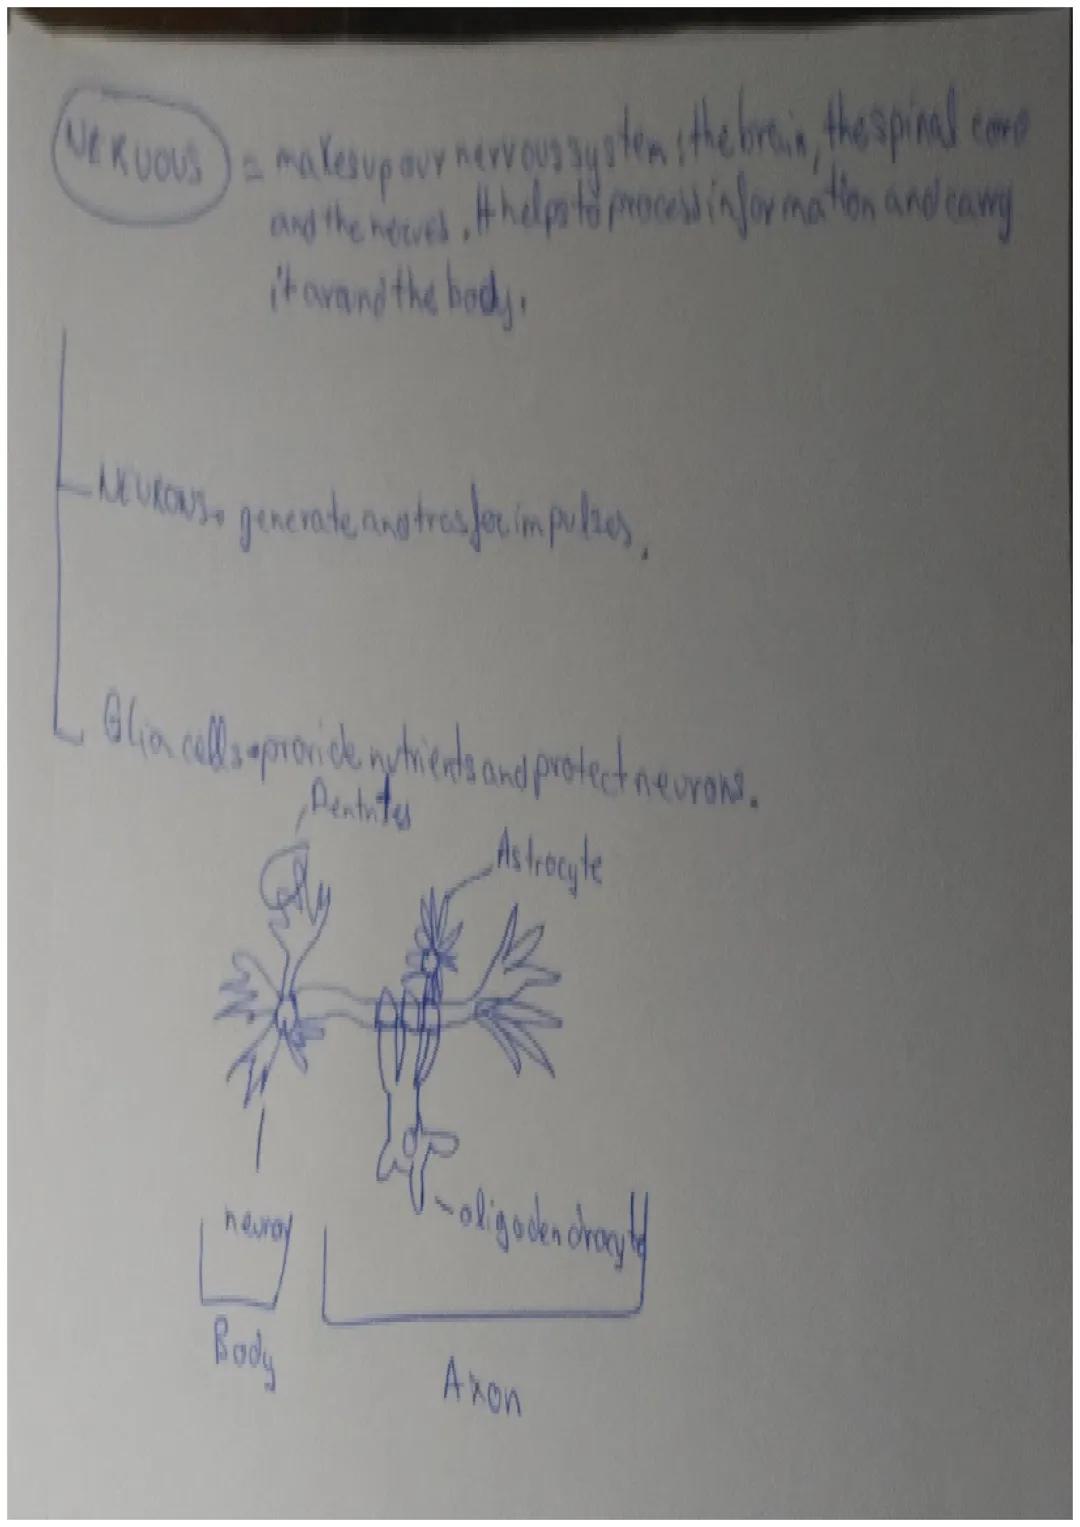 NERVOUS = makes up our nervous system: the brain, the spinal cord
and the nerves. It helps to process information and carry
it around the body.
NEURONS → generate and trasfer impulses.
Glia cells → provide nutrients and protect neurons.
Dentrites
Astrocyte
neuron
oligodendrocyte
Body
Axon